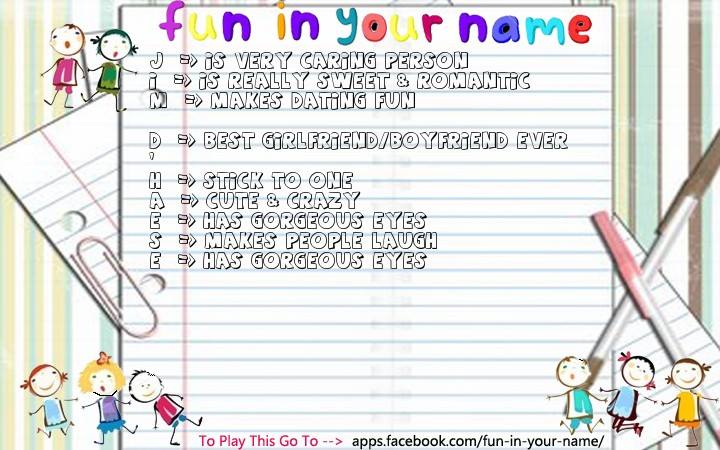 fun in your name
J => iS VERY CARiNG PERSON
i => iS REALLY SWEET & ROMANTiC
M => MAKES DATiNG FUN
D => BEST GiRLFRiEND/BOYFRiEND EVER
'
H => STiCK TO ONE
A => CUTE & CRAZY
E => HAS GORGEOUS EYES
S => MAKES PEOPLE LAUGH
E => HAS GORGEOUS EYES
To Play This Go To --> apps.facebook.com/fun-in-your-name/